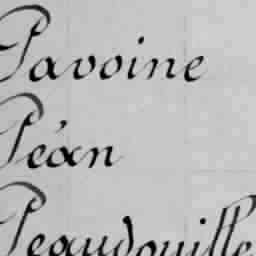 Pavoine
Péan
Peaudouille